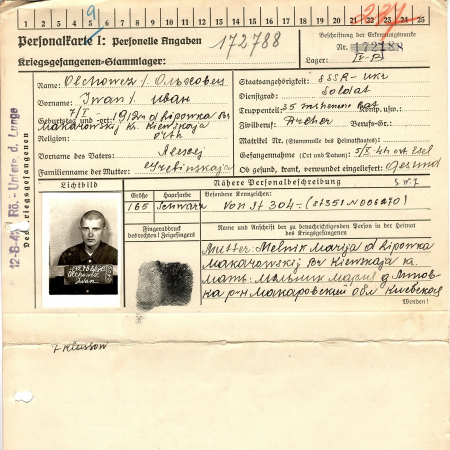 1 2 3 4 5 6 7 8 9 10 11 12 13 14 15 16 17 18 19 20 21 22 23 24 25
Personalkarte I: Personelle Angaben
172788
Kriegsgefangenen-Stammlager:
Beschriftung der Erkennungsmarke
Nr. 172788
Lager: IV-B
Name: Olchowez / Ольховец
Vorname: Iwan / Иван
Geburtstag und -ort: 1912 d Lipowka Br
Makarowskij Kiewskaja
Religion: orth
Vorname des Vaters: Alexej
Familienname der Mutter: Srebinskaja
Staatsangehörigkeit: SSSR - ukr
Dienstgrad: Soldat
Truppenteil: 35 Bat Komp. usw.:
Zivilberuf: Berufs-Gr.:
Matrikel Nr. (Stammrolle des Heimatstaates):
Gefangennahme (Ort und Datum):
Ob gesund, krank, verwundet eingeliefert: Gesund
12-8-43 Rö.-Unters. d. Lunge
Des Kriegsgefangenen
Lichtbild
Nähere Personalbeschreibung
Größe
Haarfarbe
Besondere Kennzeichen:
165 Schwarz
Von St 304 - (St 351 N 006270)
Fingerabdruck
des rechten! Zeigefingers
Name und Anschrift der zu benachrichtigenden Person in der Heimat
des Kriegsgefangenen
Mutter: Melnik Marija d Lipowka
Makarowskij Br Kiewskaja
Мать: Мельник Мария д Липов-
ка р-н Макаровский обл Киевская
Wenden!
172788
Olchowez
Iwan